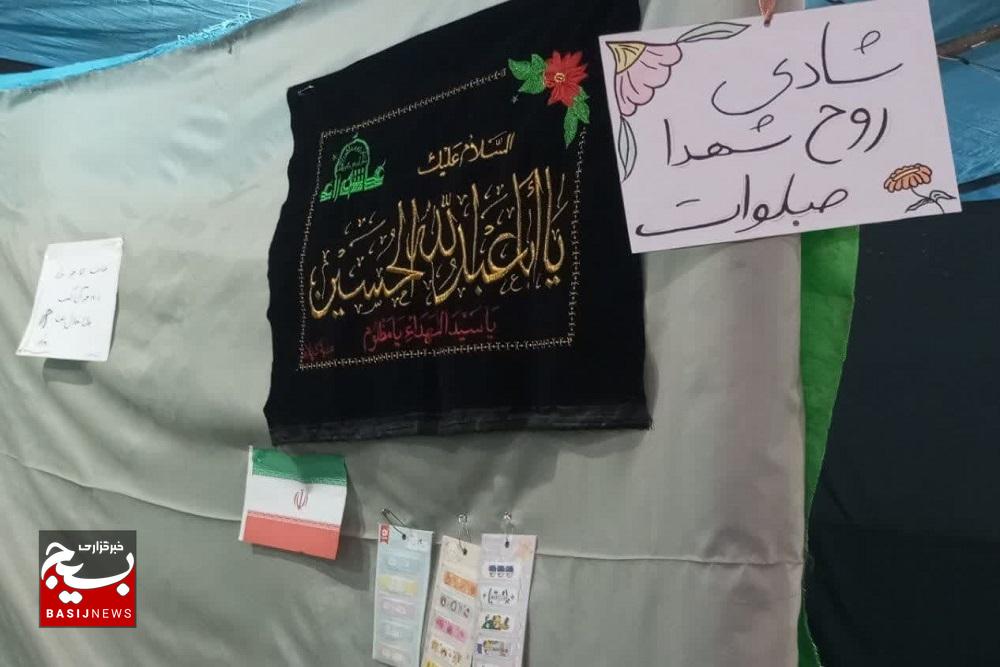 شادی
روح شهدا
صلوات
السلام علیك
یا أبا عبدالله الحسین
یا سید الشهداء یا مظلوم
عاشورا
خبرگزاری
بسیج
BASIJNEWS